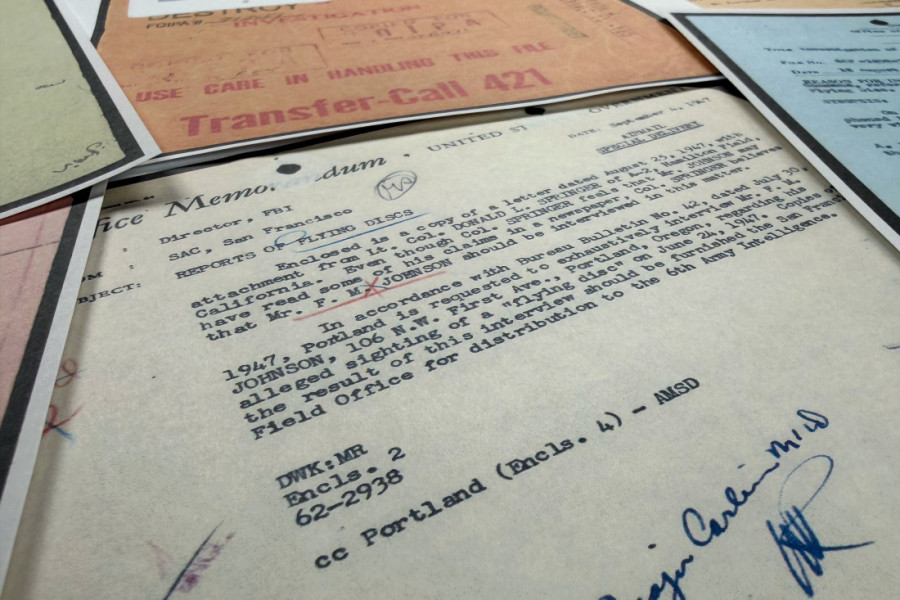 DESTROY
FOIPA#
INVESTIGATION
USE CARE IN HANDLING THIS FILE
Transfer-Call 421
UNITED ST
OVERNMEN
fice Memo
dum
DATE: September 2, 1947
AIRMAIL
SPECIAL DELIVERY
Director, FBI
OM : SAC, San Francisco
BJECT: REPORTS OF FLYING DISCS
Enclosed is a copy of a letter dated August 25, 1947, with
attachment from Lt. Col. DONALD L. SPRINGER of A-2, Hamilton Field,
California. Even though Col. SPRINGER feels that Mr. JOHNSON may
have read some of his claims in a newspaper, Col. SPRINGER believes
that Mr. F. M. JOHNSON should be interviewed in this matter.
In accordance with Bureau Bulletin No. 42, dated July 30,
1947, Portland is requested to exhaustively interview Mr. F. M.
JOHNSON, 106 N.W. First Ave., Portland, Oregon, regarding his
alleged sighting of a "flying disc" on June 24, 1947. Copies of
the result of this interview should be furnished the San Francisco
Field Office for distribution to the 6th Army Intelligence.
DWK:MR
Encls. 2
62-2938
cc Portland (Encls. 4) - AMSD